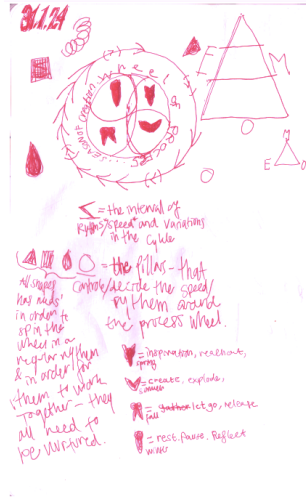 31.1.24
Wheel of Process
Season of Creation
F
M
O
E M O
= the interval of
Rythms/speed and variations
in the Cykle
= the pillars - that
Controls/decide the speed/
rythem around
the process wheel.
All shapes
has needs
in order to
spin the
wheel in a
regular rythem
& in order for
them to work
together - they
all need to
be nurtured.
= inspiration, reachout,
spring
= create, explode,
summer
= gather let go, release
fall
= rest. Pause. Reflect
winter